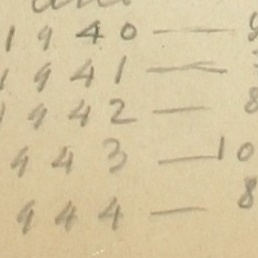 1940 —
1941 —
1942 — 8
943 — 10
944 — 8